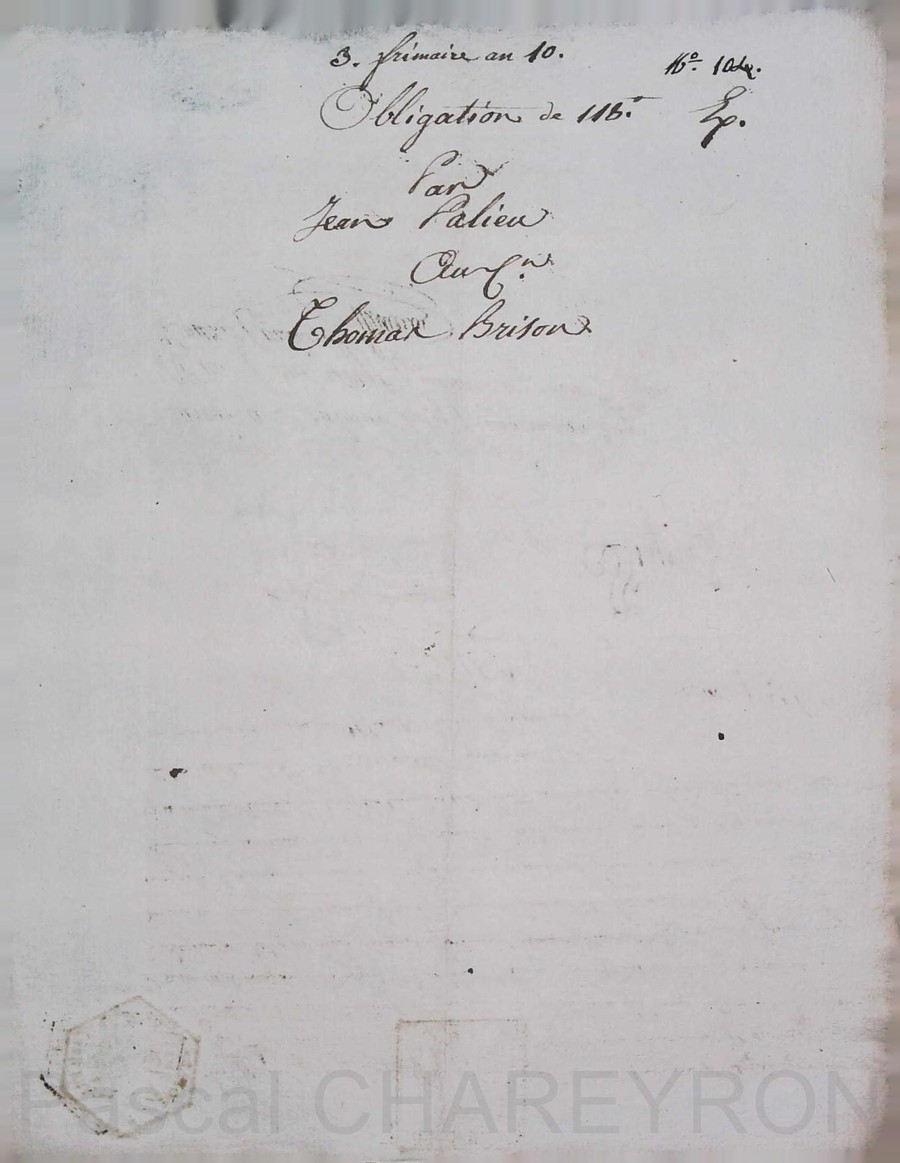 3. frimaire an 10.
Nº. 104.
Obligation de 118.ᶠ
Exp.
Par
Jean Palieu
Au Cⁿ.
Thomas Brison
Pascal CHAREYRON